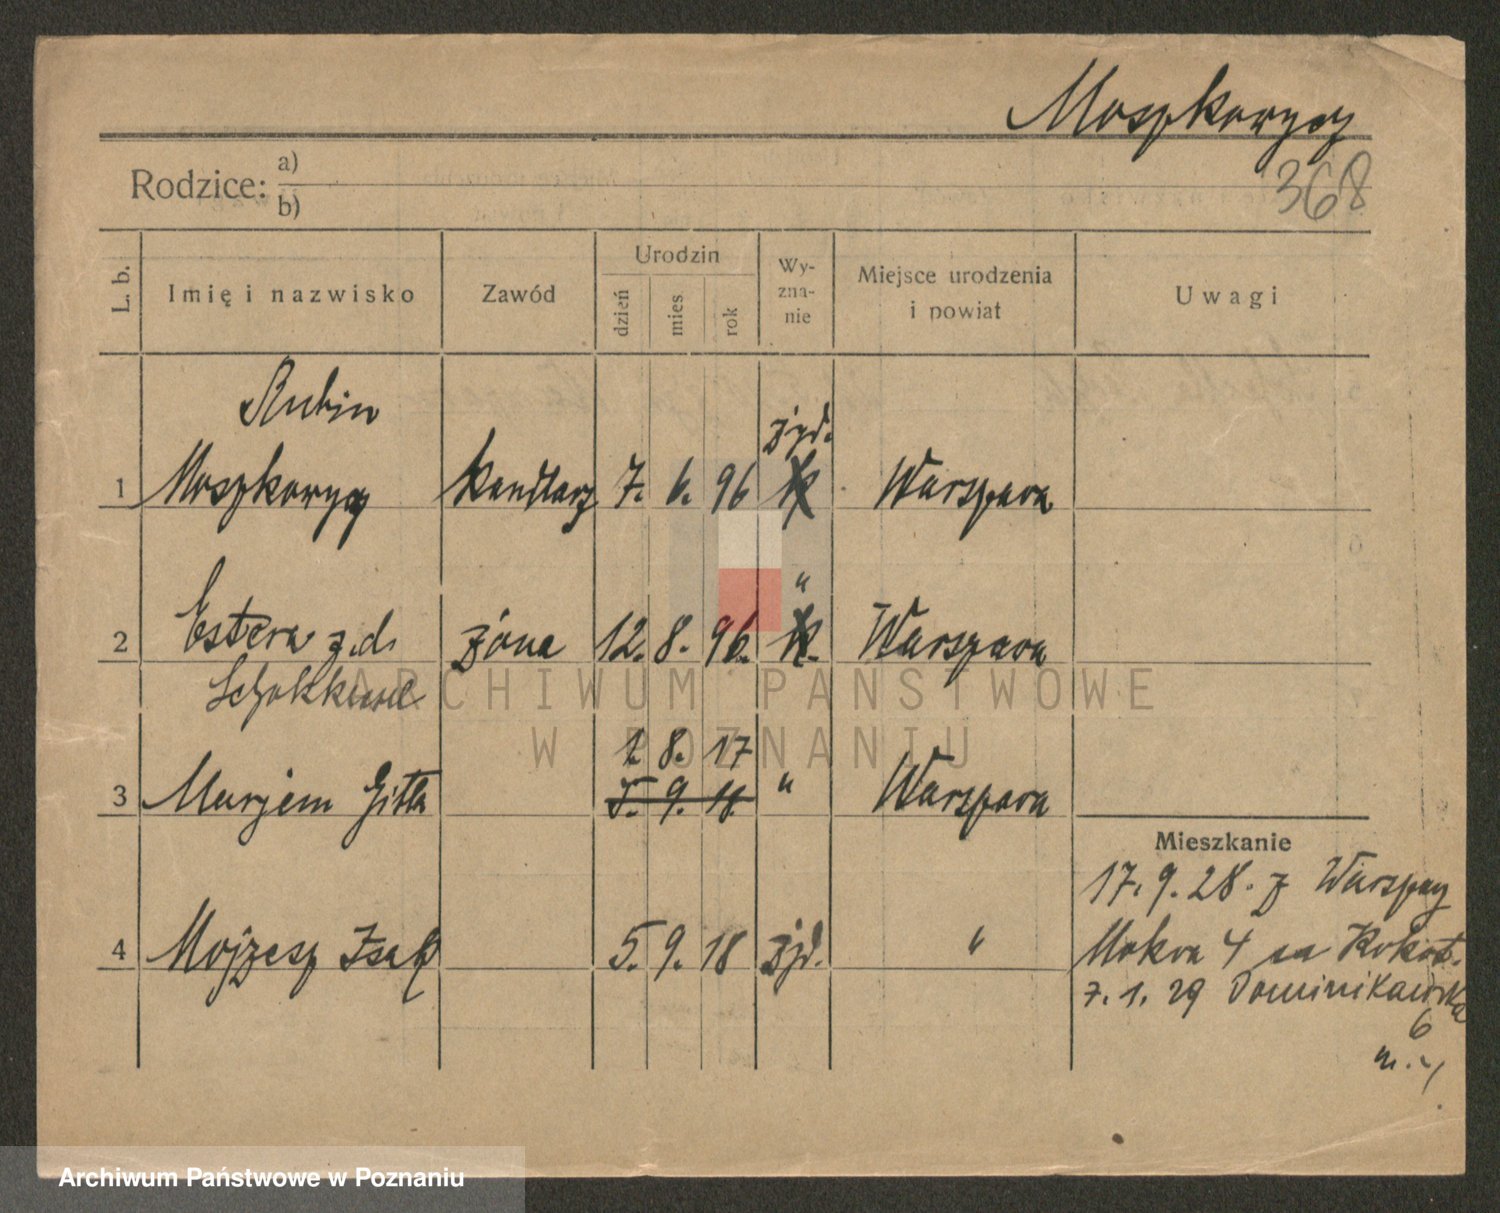 Moszkowycz
368
Rodzice: a)
b)
L. b. Imię i nazwisko Zawód Urodzin dzień mies rok Wy-zna-nie Miejsce urodzenia i powiat Uwagi
Rubin
żyd.
1 Moszkowycz handlarz 7. 6. 96 k Warszawa
"
2 Estera z.d. żona 12. 8. 96. k. Warszawa
1. 8. 17
3 Marjem Gitla 5. 9. 18 " Warszawa
Mieszkanie
17. 9. 28. z Warszawy
4 Mojżesz Izak 5. 9. 18 żyd. "
Mokra 4
7. 1. 29 Dominikańska
6
m.
ARCHIWUM PAŃSTWOWE
W POZNANIU
Archiwum Państwowe w Poznaniu